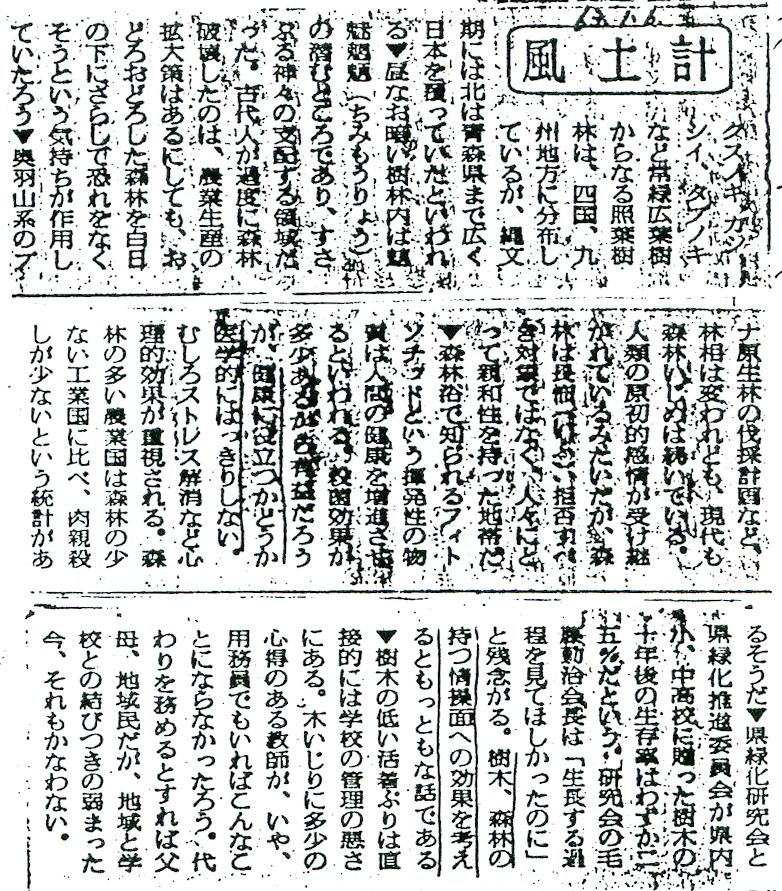 63.1.6
風土計
クスノキ、カシ、
シイ、タブノキ
など常緑広葉樹
からなる照葉樹
林は、四国、九
州地方に分布し
ているが、縄文
期には北は青森県まで広く
日本を覆っていたといわれ
る▼昼なお暗い樹林内は魑
魅魍魎(ちみもうりょう)
の潜むところであり、すさ
ぶる神々の支配する領域だ
った。古代人が過度に森林
破壊したのは、農業生産の
拡大策はあるにしても、お
どろおどろした森林を白日
の下にさらして恐れをなく
そうという気持ちが作用し
ていたろう▼奥羽山系のブ
ナ原生林の伐採計画など、
林相は変われども、現代も
森林いじめは続いている。
人類の原初的感情が受け継
がれているみたいだが、森
林は長価つけぶい拒否すべ
き対象ではなく、人々にと
って親和性を持った地帯だ
▼森林浴で知られるフィト
ンチッドという揮発性の物
質は人間の健康を増進させ
るといわれる。殺菌効果が
多少あるから有益だろう
が、健康に役立つかどうか
医学的にはっきりしない。
むしろストレス解消など心
理的効果が重視される。森
林の多い農業国は森林の少
ない工業国に比べ、肉親殺
しが少ないという統計があ
るそうだ▼県緑化研究会と
県緑化推進委員会が県内
小、中高校に贈った樹木の
十年後の生存率はわずか二
五%だという。研究会の毛
藤勤治会長は「生長する過
程を見てほしかったのに」
と残念がる。樹木、森林の
持つ情操面への効果を考え
るともっともな話である
▼樹木の低い活着ぶりは直
接的には学校の管理の悪さ
にある。木いじりに多少の
心得のある教師が、いや、
用務員でもいればこんなこ
とにならなかったろう。代
わりを務めるとすれば父
母、地域民だが、地域と学
校との結びつきの弱まった
今、それもかなわない。